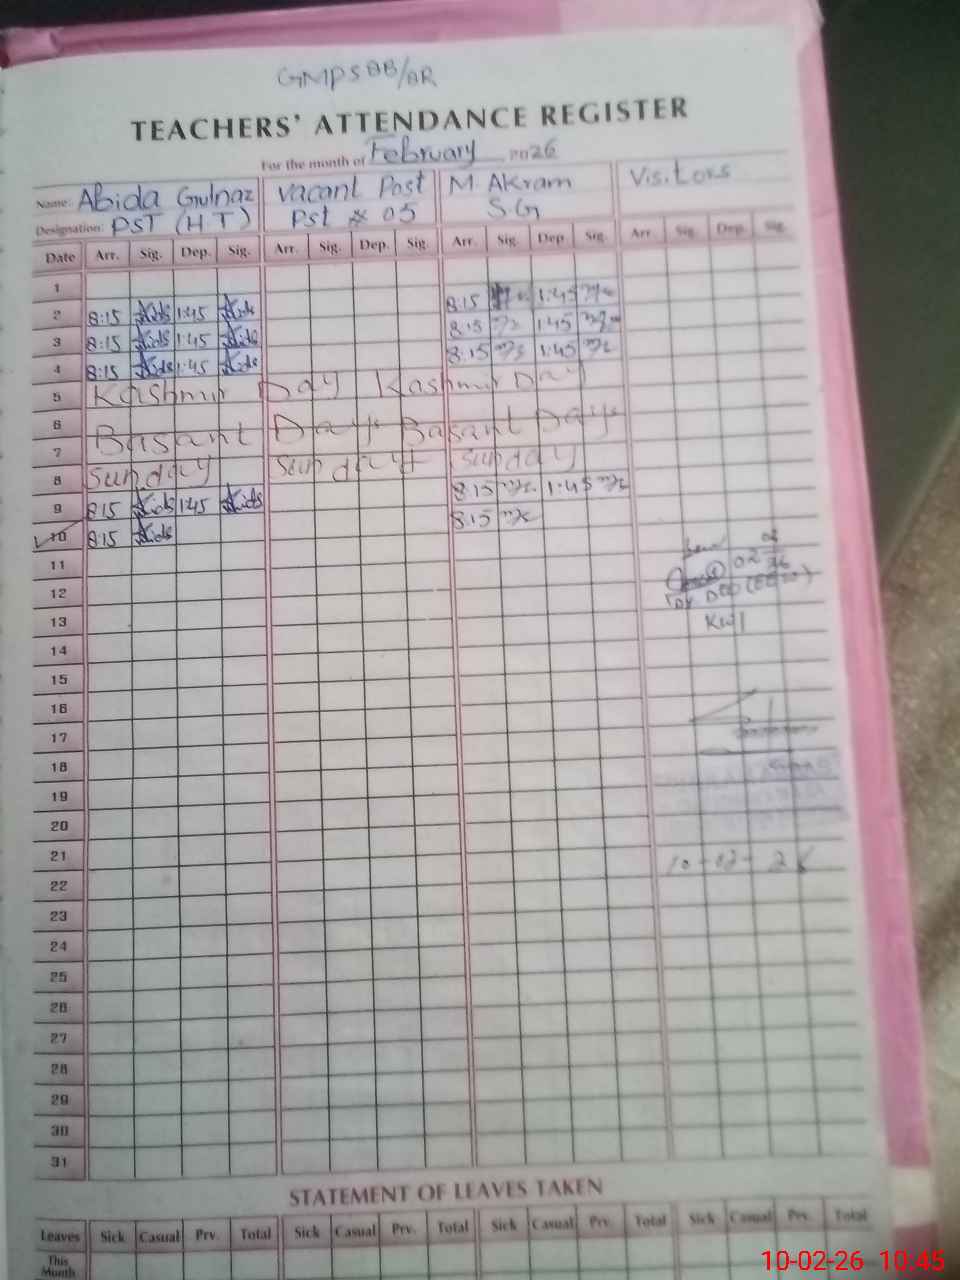 GMPS BB/BR
TEACHERS' ATTENDANCE REGISTER
For the month of February 2026
Name: Abida Gulnaz Vacant Post M Akram Visitors
Designation: PST (H T) Pst * 05 SG
Date Arr. Sig. Dep. Sig. Arr. Sig. Dep. Sig. Arr. Sig. Dep. Sig. Arr. Sig. Dep. Sig.
1
2 8:15 1:45 8:15 1:45
3 8:15 1:45 8:15 1:45
4 8:15 1:45 8:15 1:45
5 Kashmir Day Kashmir Day
6
7 Basant Days Basant Days
8 Sunday Sunday Sunday
9 8:15 1:45 8:15 1:45
10 8:15 8:15
11
12 DEO
13
14
15
16
17
18
19
20
21
22
23
24
25
26
27
28
29
30
31
STATEMENT OF LEAVES TAKEN
Leaves Sick Casual Prv. Total Sick Casual Prv. Total Sick Casual Prv. Total Sick Casual Prv. Total
This
Month
10-02-26 10:45